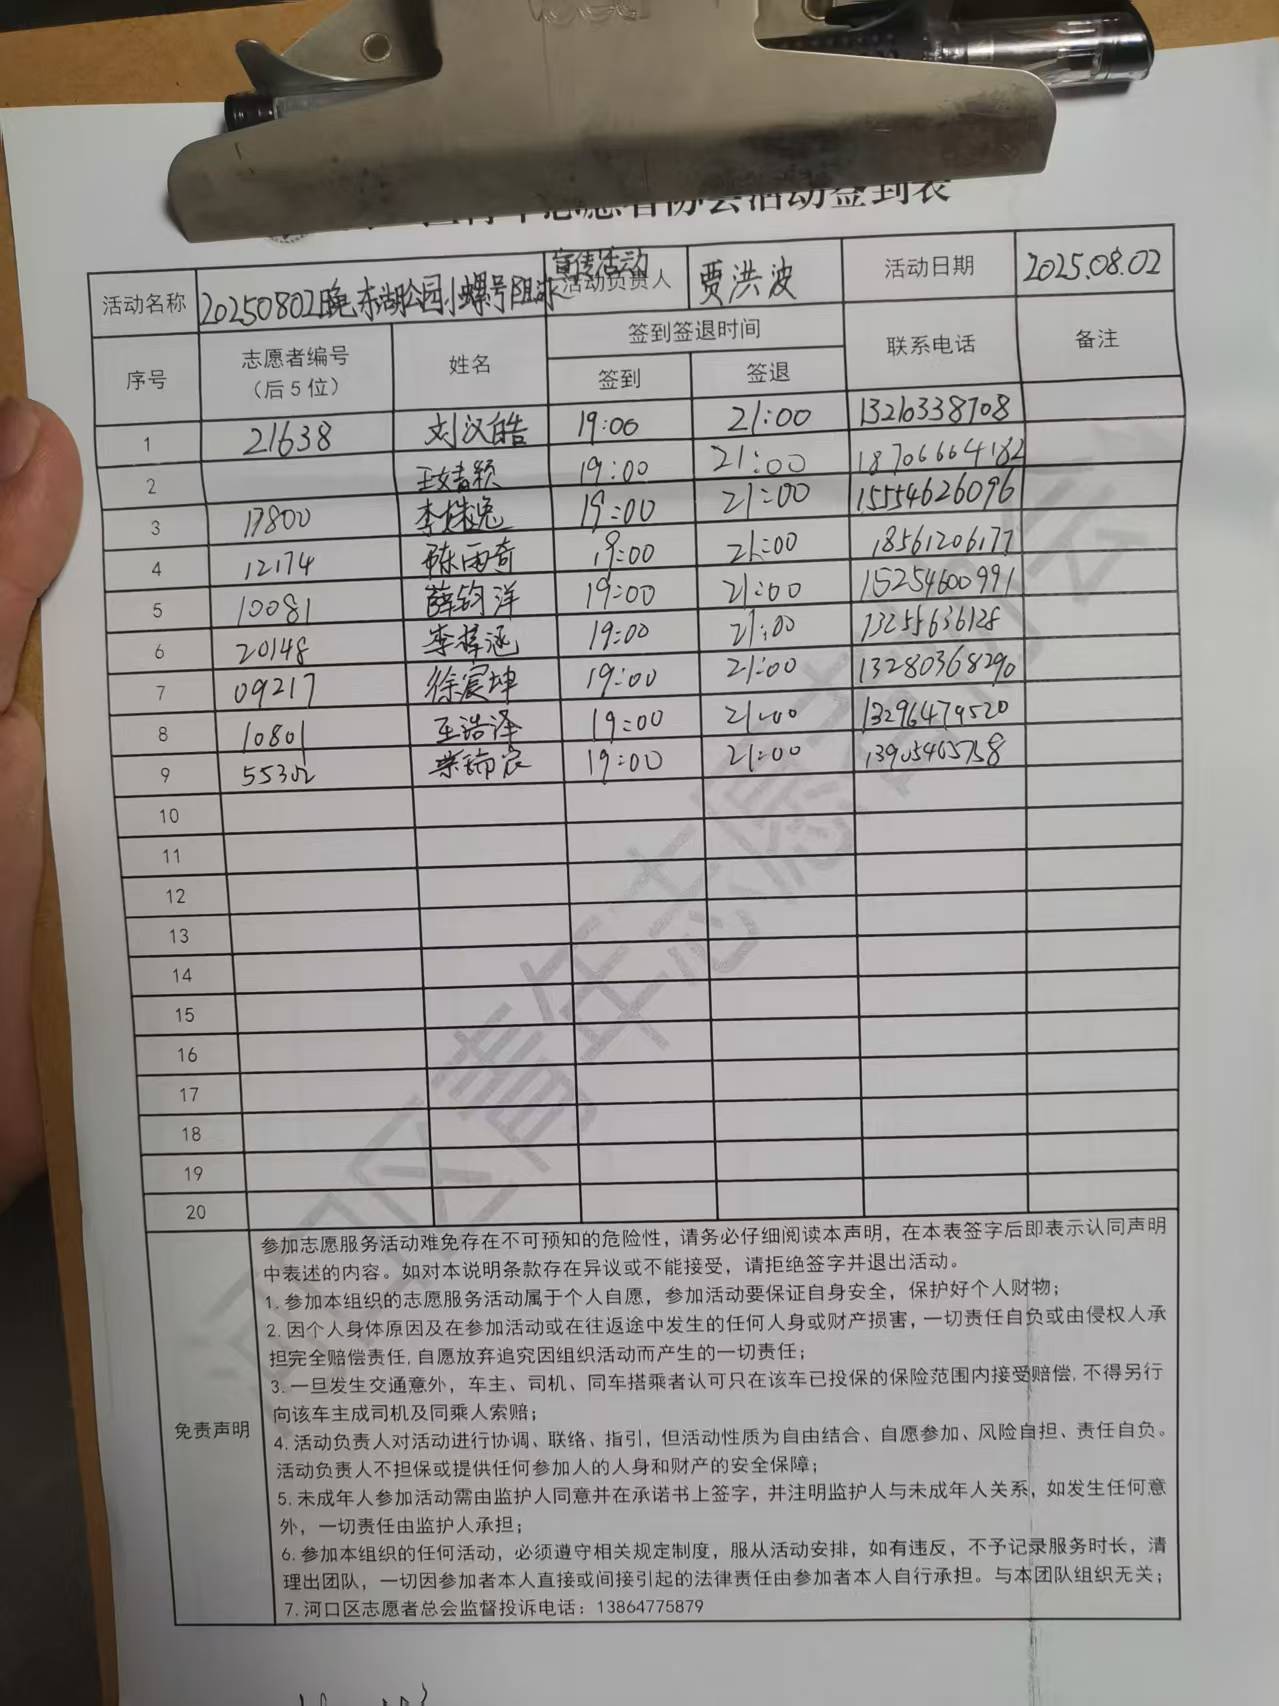 青年志愿者协会活动签到表
活动名称 20250802晚东湖公园小螺号阻冰宣传活动 活动负责人 贾洪波 活动日期 2025.08.02
序号 志愿者编号（后5位） 姓名 签到签退时间 联系电话 备注
签到 签退
1 21638 刘汉皓 19:00 21:00 13210338708
2 19:00 21:00 18706664182
3 17800 19:00 21:00 15554626096
4 12174 陈雨奇 19:00 21:00 18561206177
5 10081 薛钧洋 19:00 21:00 15254600991
6 20148 李梓涵 19:00 21:00 13255636128
7 09217 徐宸坤 19:00 21:00 13280368290
8 10801 王浩泽 19:00 21:00 13296479520
9 55302 19:00 21:00 13905465758
10
11
12
13
14
15
16
17
18
19
20
免责声明
参加志愿服务活动难免存在不可预知的危险性，请务必仔细阅读本声明，在本表签字后即表示认同声明
中表述的内容。如对本说明条款存在异议或不能接受，请拒绝签字并退出活动。
1.参加本组织的志愿服务活动属于个人自愿，参加活动要保证自身安全，保护好个人财物；
2.因个人身体原因及在参加活动或在往返途中发生的任何人身或财产损害，一切责任自负或由侵权人承
担完全赔偿责任，自愿放弃追究因组织活动而产生的一切责任；
3.一旦发生交通意外，车主、司机、同车搭乘者认可只在该车已投保的保险范围内接受赔偿，不得另行
向该车主成司机及同乘人索赔；
4.活动负责人对活动进行协调、联络、指引，但活动性质为自由结合、自愿参加、风险自担、责任自负。
活动负责人不担保或提供任何参加人的人身和财产的安全保障；
5.未成年人参加活动需由监护人同意并在承诺书上签字，并注明监护人与未成年人关系，如发生任何意
外，一切责任由监护人承担；
6.参加本组织的任何活动，必须遵守相关规定制度，服从活动安排，如有违反，不予记录服务时长，清
理出团队，一切因参加者本人直接或间接引起的法律责任由参加者本人自行承担。与本团队组织无关；
7.河口区志愿者总会监督投诉电话：13864775879
河口区青年志愿者协会